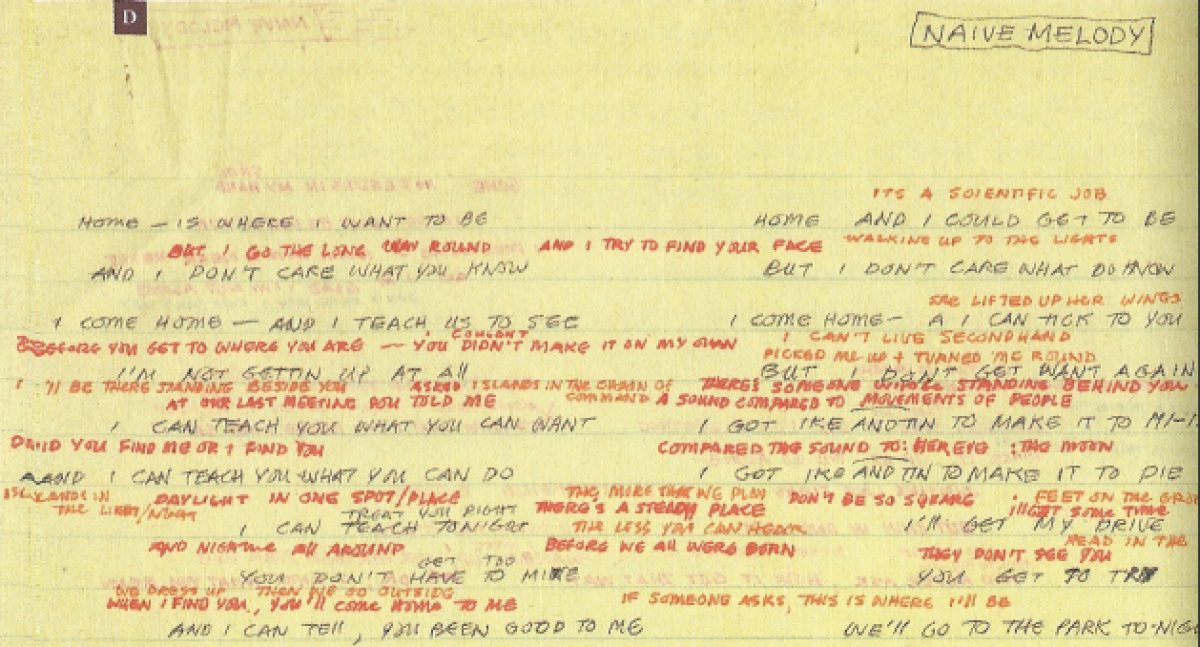 D
NAIVE MELODY
ITS A SCIENTIFIC JOB
HOME — IS WHERE I WANT TO BE HOME AND I COULD GET TO BE
BUT I GO THE LONG WAY ROUND AND I TRY TO FIND YOUR FACE WALKING UP TO THE LIGHTS
AND I DON'T CARE WHAT YOU KNOW BUT I DON'T CARE WHAT DO KNOW
SHE LIFTED UP HER WINGS
I COME HOME — AND I TEACH US TO SEE I COME HOME — A I CAN TICK TO YOU
COULDN'T I CAN'T LIVE SECONDHAND
BEFORE YOU GET TO WHERE YOU ARE — YOU DIDN'T MAKE IT ON MY OWN
PICKED ME UP + TURNED ME ROUND
I'M NOT GETTIN UP AT All BUT I DON'T GET WANT AGAIN
I 'll BE THERE STANDING BESIDE YOU ASKED ISLANDS IN THE CHAIN OF COMMAND THERE'S SOMEONE STANDING BEHIND YOU
AT OUR LAST MEETING YOU TOLD ME A SOUND COMPARED TO MOVEMENTS OF PEOPLE
I CAN TEACH YOU WHAT YOU CAN WANT I GOT IKE AND TIN TO MAKE IT TO
DID YOU FIND ME OR I FIND YOU COMPARED THE SOUND TO: HER EYE : THE MOON
AND I CAN TEACH YOU WHAT YOU CAN DO I GOT IKE AND TIN TO MAKE IT TO DIE
ISLANDS IN DAYLIGHT IN ONE SPOT/PLACE THE MORE THAT WE PLAY DON'T BE SO SQUARE FEET ON THE
THE LIGHT/NIGHT TREAT YOU RIGHT THERE'S A STEADY PLACE I'll GET SOME TIME
I CAN TEACH TONIGHT THE LESS YOU CAN HEAR I'll GET MY DRIVE
HEAD IN THE
AND NIGHTIME All AROUND BEFORE WE All WERE BORN THEY DON'T SEE YOU
GET TOO
YOU DON'T HAVE TO YOU GET TO
WE DRESS UP THEN WE GO OUTSIDE
WHEN I FIND YOU, YOU'll COME HOME TO ME IF SOMEONE ASKS, THIS IS WHERE I'll BE
AND I CAN TEll, YOU BEEN GOOD TO ME WE'll GO TO THE PARK